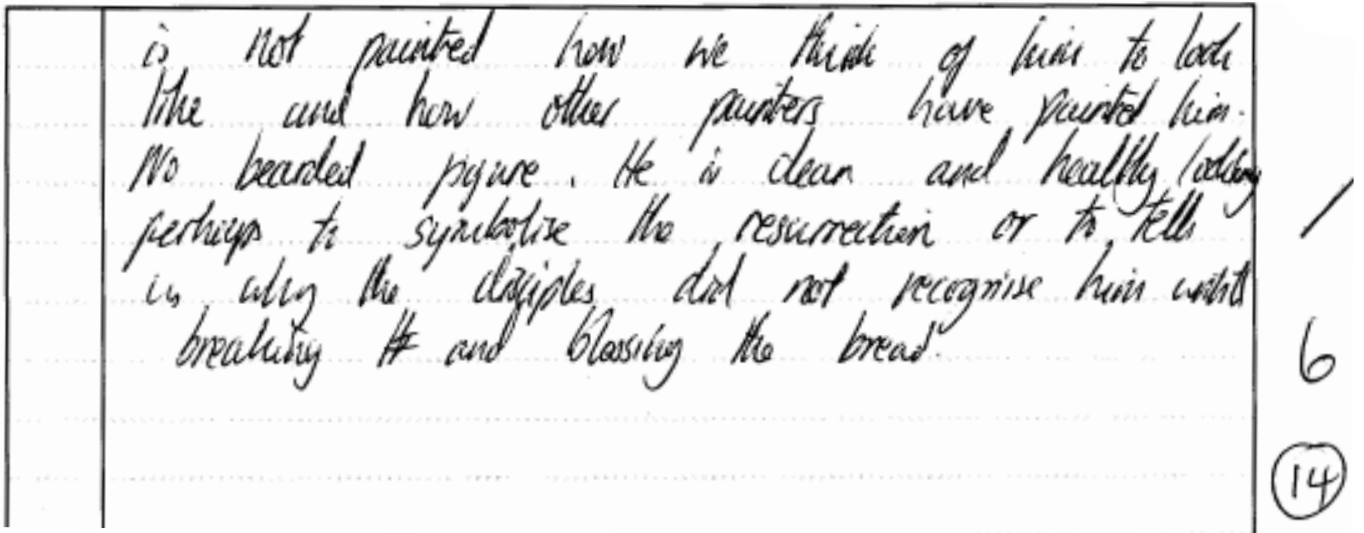 is not painted how we think of him to look
like and how other painters have painted him.
No bearded figure. He is clean and healthy looking
perhaps to symbolize the resurrection or to tells
us why the disciples did not recognise him until
breaking and blessing the bread.
/
6
14